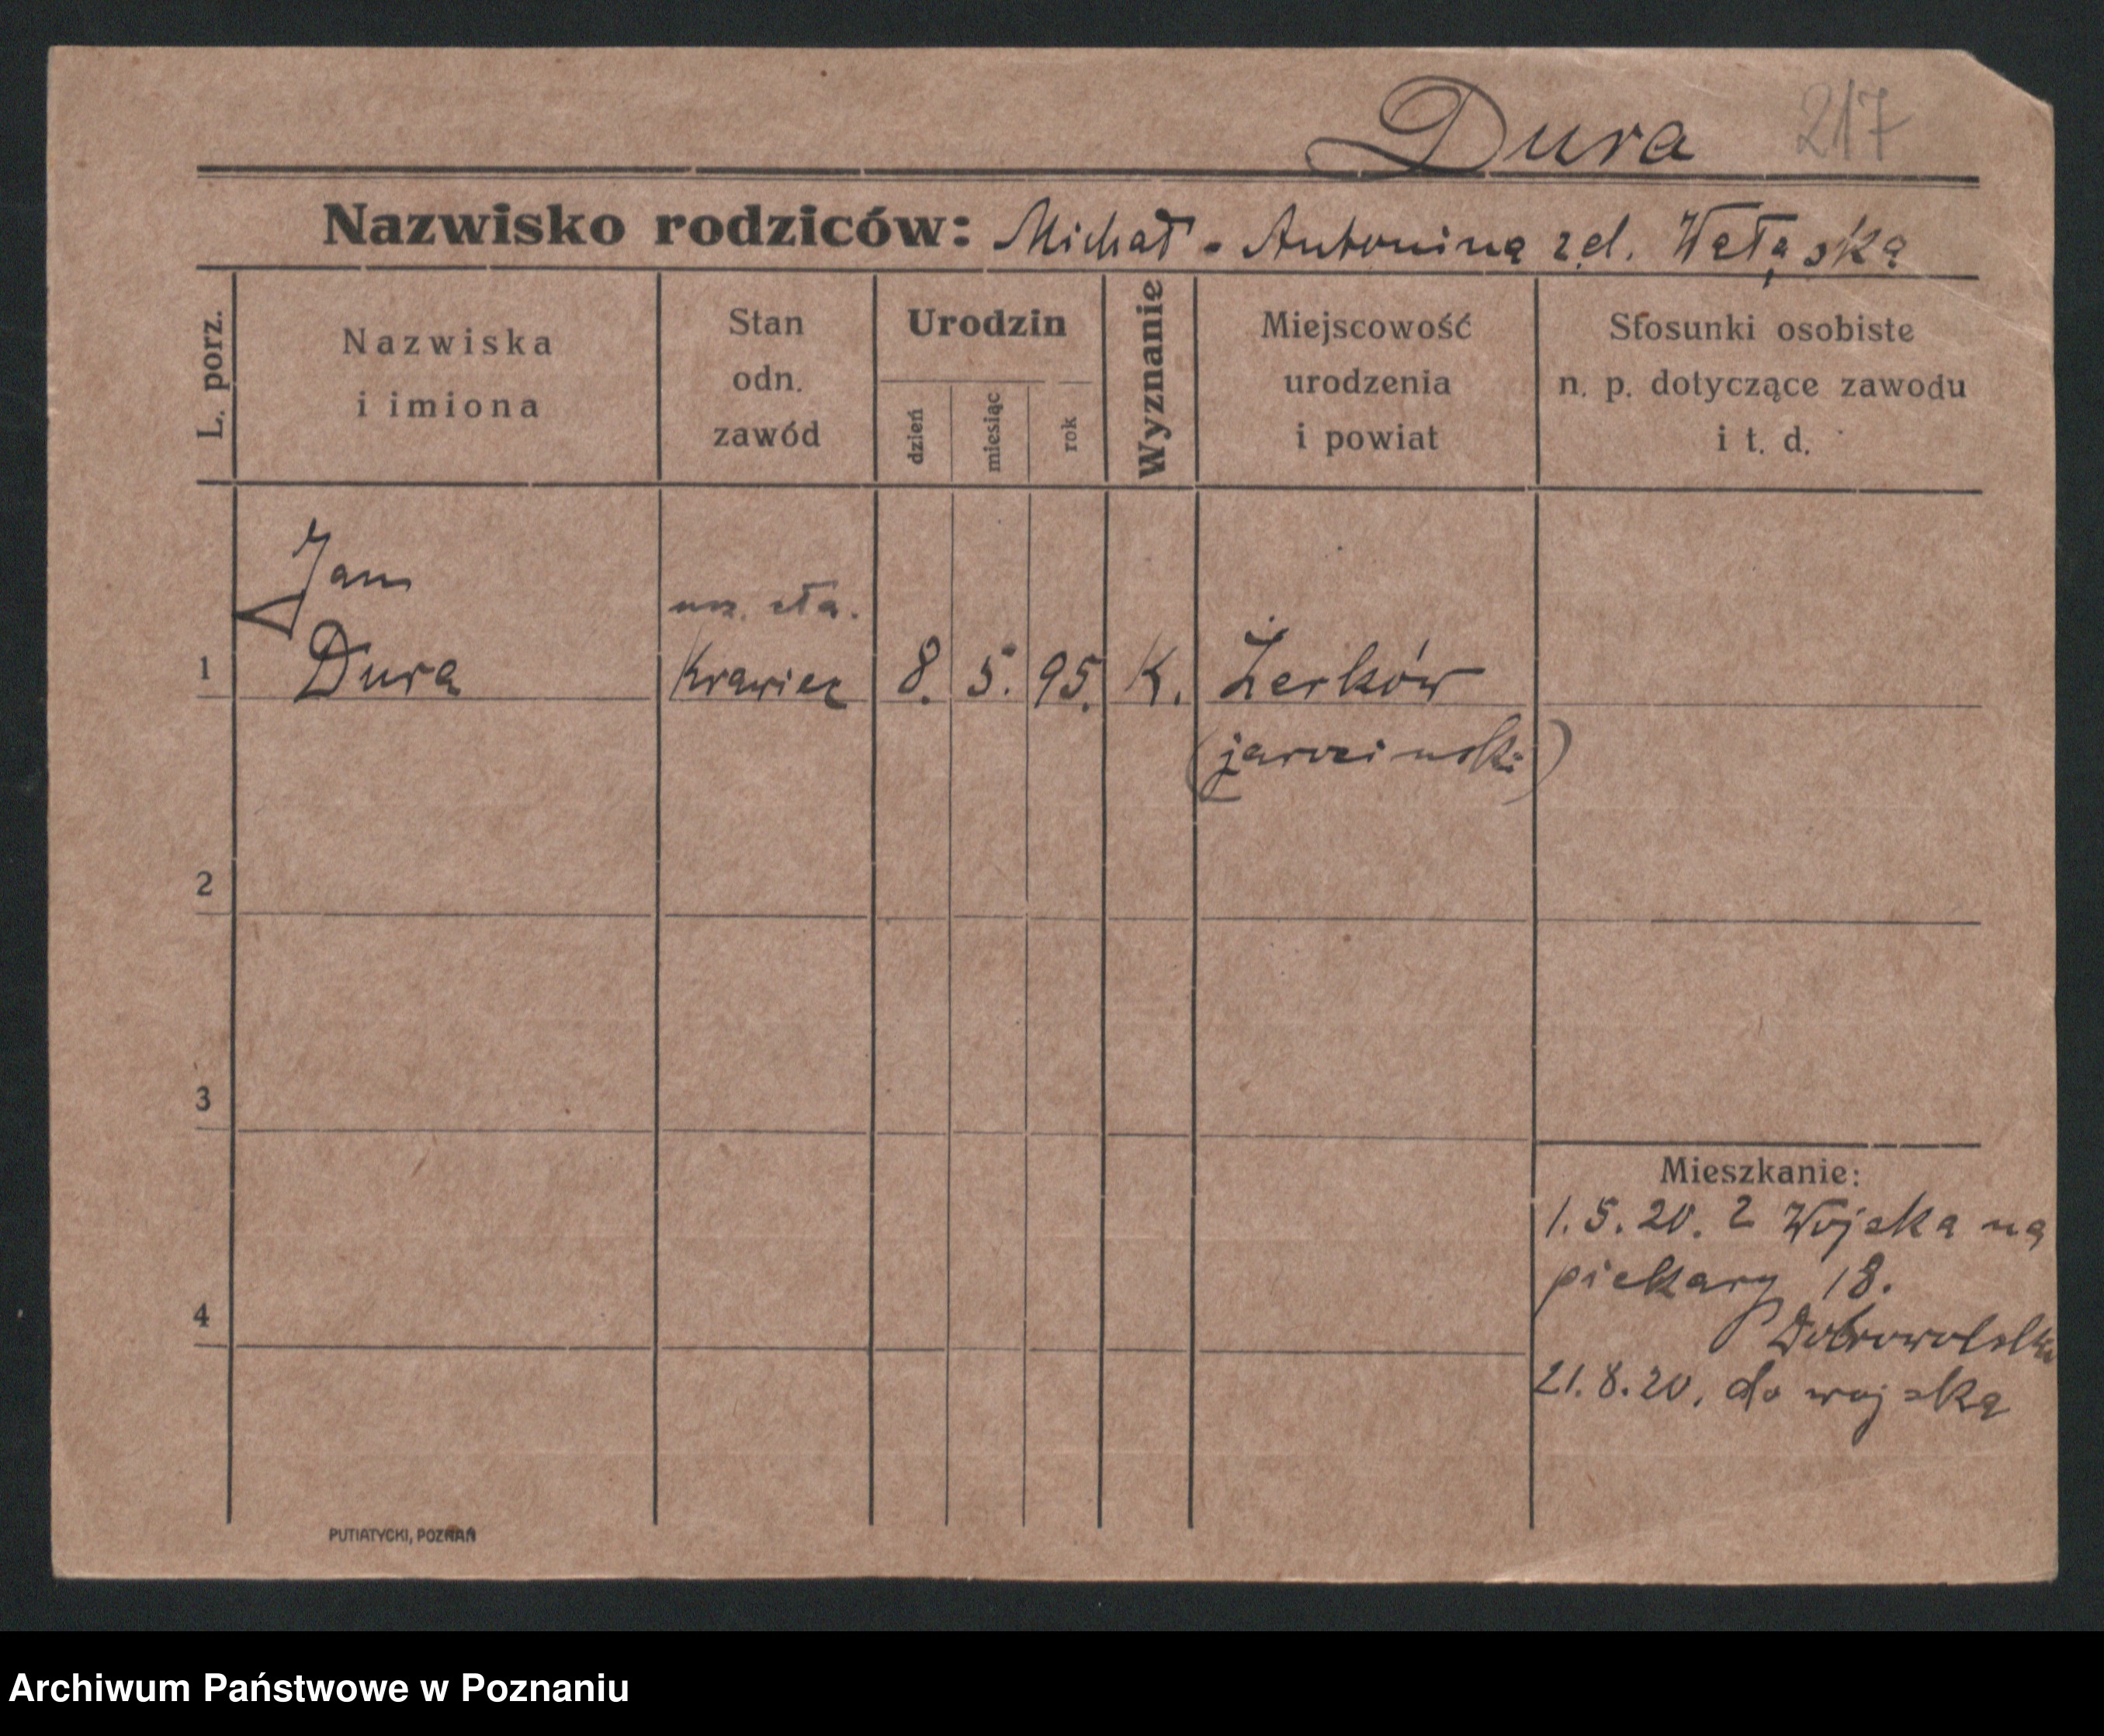 Dura 217
Nazwisko rodziców: Michał - Antonina
L. porz.
Nazwiska
i imiona
Stan
odn.
zawód
Urodzin
dzień
miesiąc
rok
Wyznanie
Miejscowość
urodzenia
i powiat
Stosunki osobiste
n. p. dotyczące zawodu
i t. d.
Jan
1 Dura Krawiec 8. 5. 95. K. Żerków
(jarociński)
2
3
4
Mieszkanie:
1. 5. 20. z Wojska na
piekary 18.
p Dobrowolski
21. 8. 20. do wojska
PUTIATYCKI, POZNAŃ
Archiwum Państwowe w Poznaniu